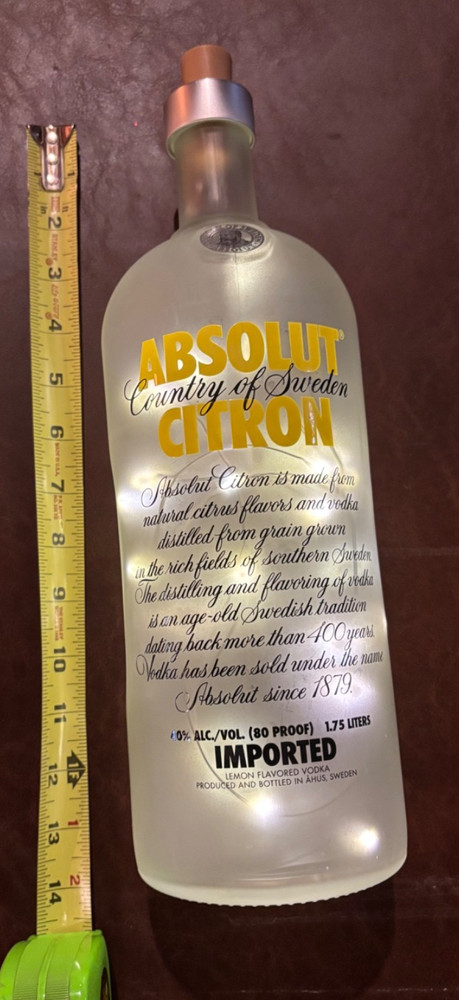 ABSOLUT®
Country of Sweden
CITRON
Absolut Citron is made from
natural citrus flavors and vodka
distilled from grain grown
in the rich fields of southern Sweden.
The distilling and flavoring of vodka
is an age-old Swedish tradition
dating back more than 400 years.
Vodka has been sold under the name
Absolut since 1879.
0% ALC./VOL. (80 PROOF) 1.75 LITERS
IMPORTED
LEMON FLAVORED VODKA
PRODUCED AND BOTTLED IN ÅHUS, SWEDEN
2
3
4
5
6
7
8
9
10
11
12
13
14
1
2